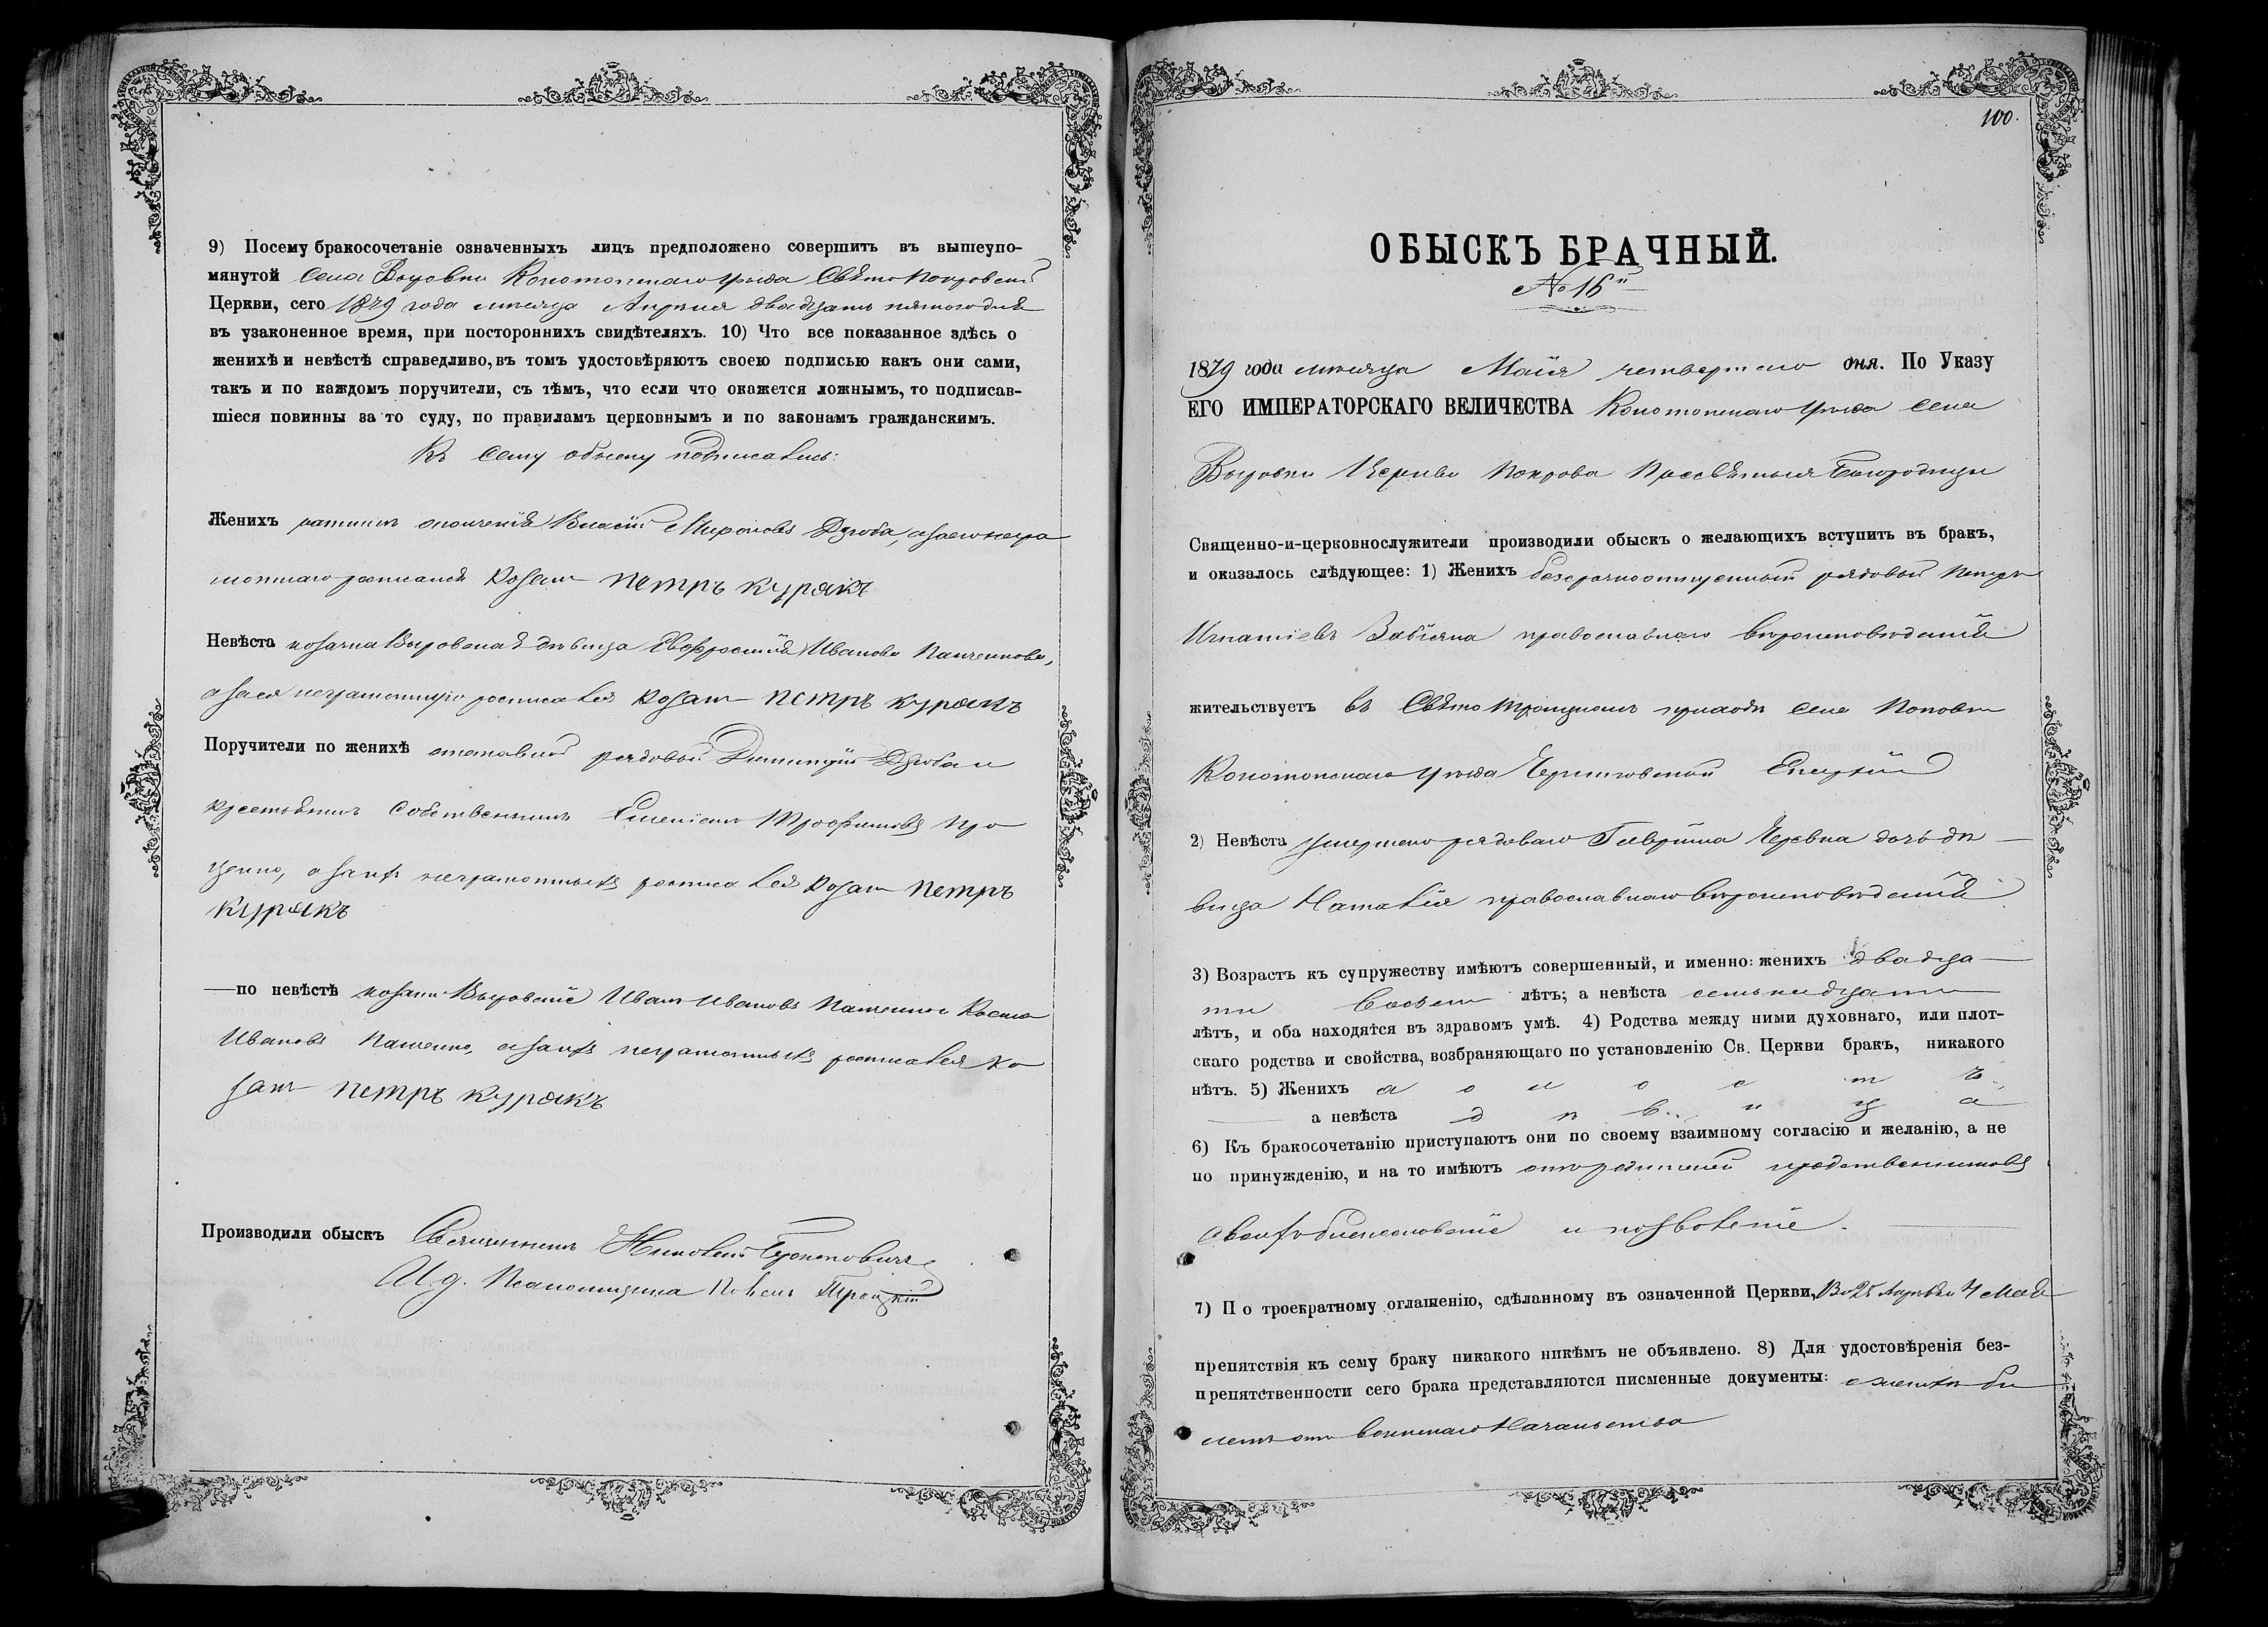 9) Посему бракосочетаніе означенныхъ лицъ предположено совершить въ вышеупо-
мянутой села Выровки Конотопскаго уѣзда Свято Покровской
Церкви, сего 1879 года мѣсяца Апрѣля двадцать пятого дня
въ узаконенное время, при постороннихъ свидѣтеляхъ. 10) Что все показанное здѣсь о
женихѣ и невѣстѣ справедливо, въ томъ удостовѣряютъ своею подписью какъ они сами,
такъ и по каждомъ поручители, съ тѣмъ, что если что окажется ложнымъ, то подписав-
шіеся повинны за то суду, по правиламъ церковнымъ и по законамъ гражданскимъ.
Къ сему обыску подписались:
Женихъ ратникъ ополченія Власій Мироновъ Дзюба, а за его негра
мотнаго росписался козакъ Петръ Курякъ
Невѣста козачка Выровская дѣвица Евфросинія Иванова Панченкова,
а за ея неграмотную росписался козакъ Петръ Курякъ
Поручители по женихѣ отставной рядовой Димитрій Дзюба и
крестьянинъ собственникъ Трофимовъ Про
ценко, а за ихъ неграмотныхъ росписался козакъ Петръ
Курякъ
— по невѣстѣ козаки Выровскіе Иванъ Ивановъ Панченко и Косма
Ивановъ Панченко, а за ихъ неграмотныхъ росписался ко
закъ Петръ Курякъ
Производили обыскъ Священникъ Николай
И. д. Псаломщика Троицкій
100.
ОБЫСКЪ БРАЧНЫЙ.
№ 16й
1879 года мѣсяца Маія четвертаго дня. По Указу
ЕГО ИМПЕРАТОРСКАГО ВЕЛИЧЕСТВА Конотопскаго уѣзда села
Выровки Церкви Покрова Пресвятыя Богородицы
Священно-и-церковнослужители производили обыскъ о желающихъ вступить въ бракъ,
и оказалось слѣдующее: 1) Женихъ безсрочноотпускный рядовый Петръ
Игнатіевъ Забіяка православнаго вѣроисповѣданія
жительствуетъ въ Свято Троицкомъ приходѣ села Поповки
Конотопскаго уѣзда Черниговской Епархіи
2) Невѣста умершаго рядоваго Гавріила Черевка дочь дѣ —
вица Наталія православнаго вѣроисповѣданія
3) Возрастъ къ супружеству имѣютъ совершенный, и именно: женихъ двадца —
ти восьми лѣтъ; а невѣста семьнадцати
лѣтъ, и оба находятся въ здравомъ умѣ. 4) Родства между ними духовнаго, или плот-
скаго родства и свойства, возбраняющаго по установленію Св. Церкви бракъ, никакого
нѣтъ. 5) Женихъ холостъ
— а невѣста дѣвица
6) Къ бракосочетанію приступаютъ они по своему взаимному согласію и желанію, а не
по принужденію, и на то имѣютъ отъ родителей и родственниковъ
своихъ благословеніе и позволеніе. —
7) По троекратному оглашенію, сдѣланному въ означенной Церкви, Апрѣля 4 Мая
препятствія къ сему браку никакого никѣмъ не объявлено. 8) Для удостовѣренія без-
препятственности сего брака представляются писменные документы: женихъ би
летъ отъ воинскаго Начальства